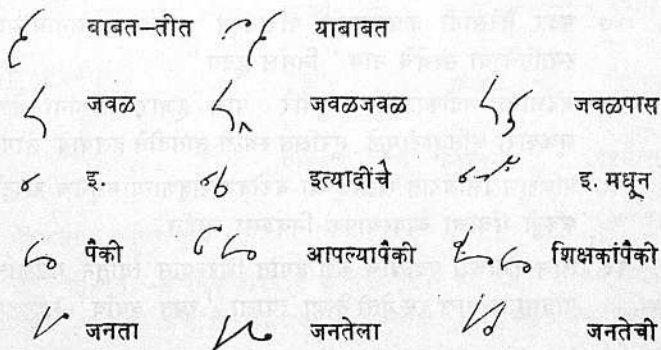 बाबत-तीत याबाबत
जवळ जवळजवळ जवळपास
इ. इत्यादींचे इ. मधून
पैकी आपल्यापैकी शिक्षकांपैकी
जनता जनतेला जनतेची